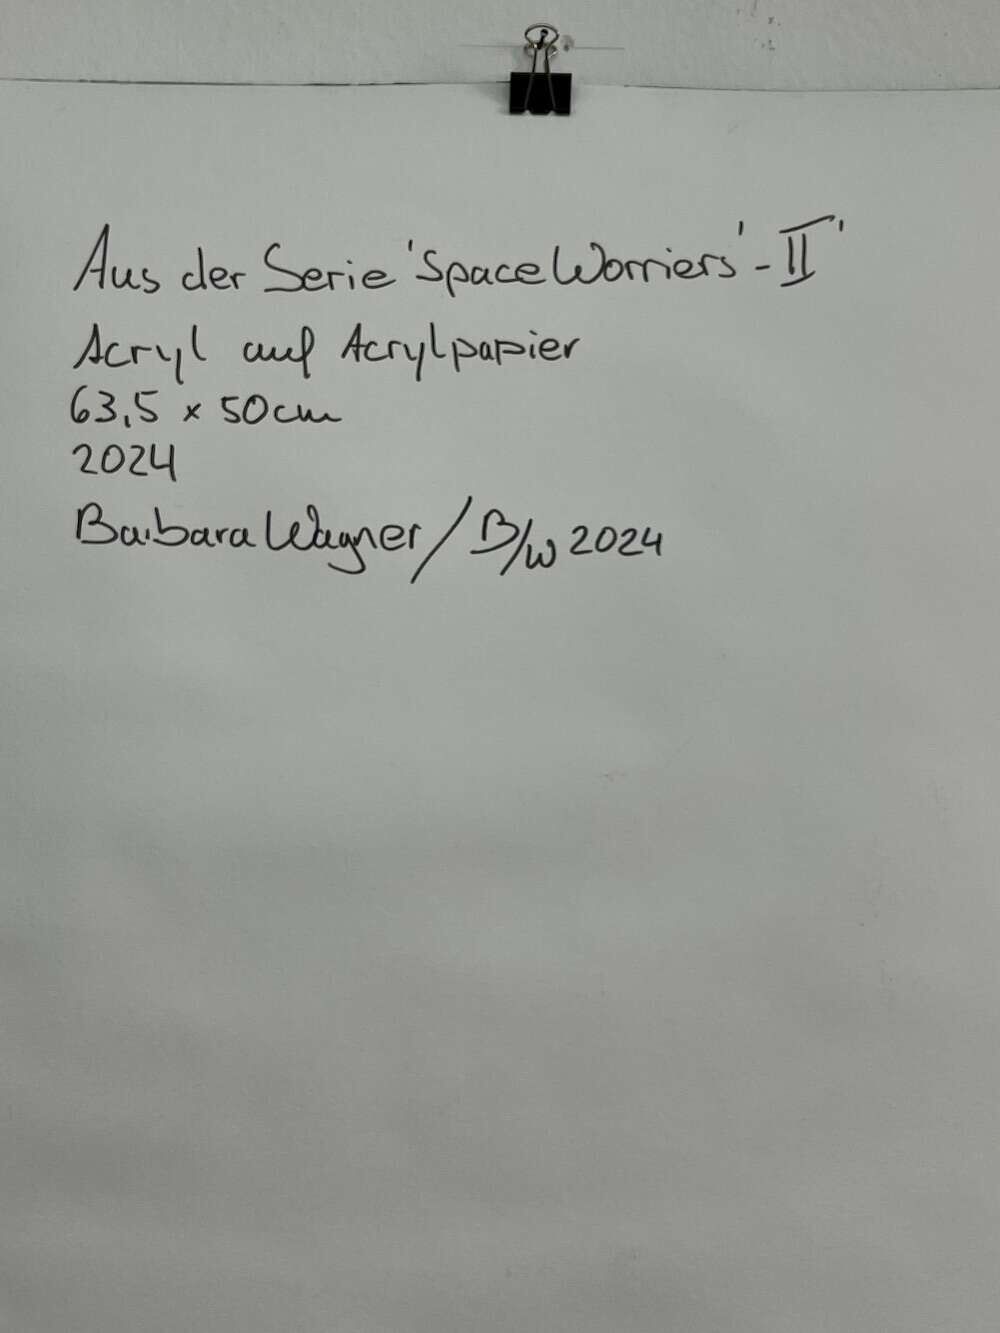 Aus der Serie 'Space Worriers' - II'
Acryl auf Acrylpapier
63,5 x 50cm
2024
Barbara Wagner / B/W 2024